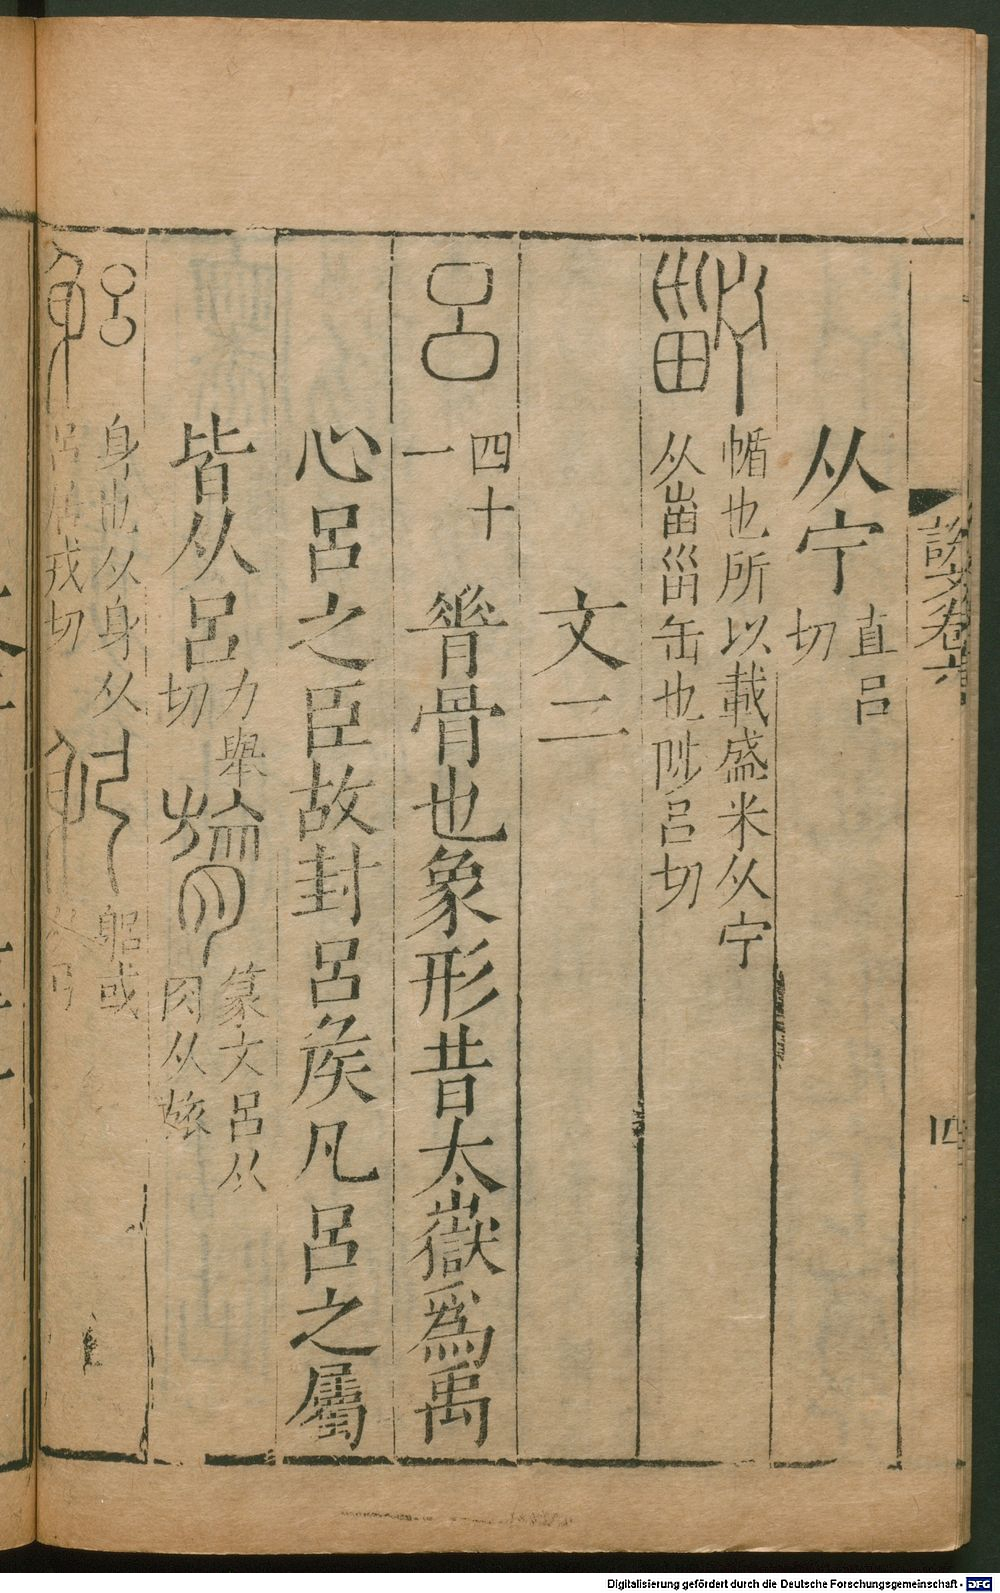 說文卷六
四
从宁直吕切
㡒 幡也所以載盛米从宁从甾甾缶也陟吕切
文二
呂 四十一 脊骨也象形昔太嶽爲禹
心呂之臣故封呂矦凡呂之屬
皆从呂力舉切 膂 篆文呂从肉从旅
躳 身也从身从呂居戎切 躬 躳或从弓
Digitalisierung gefördert durch die Deutsche Forschungsgemeinschaft - DFG